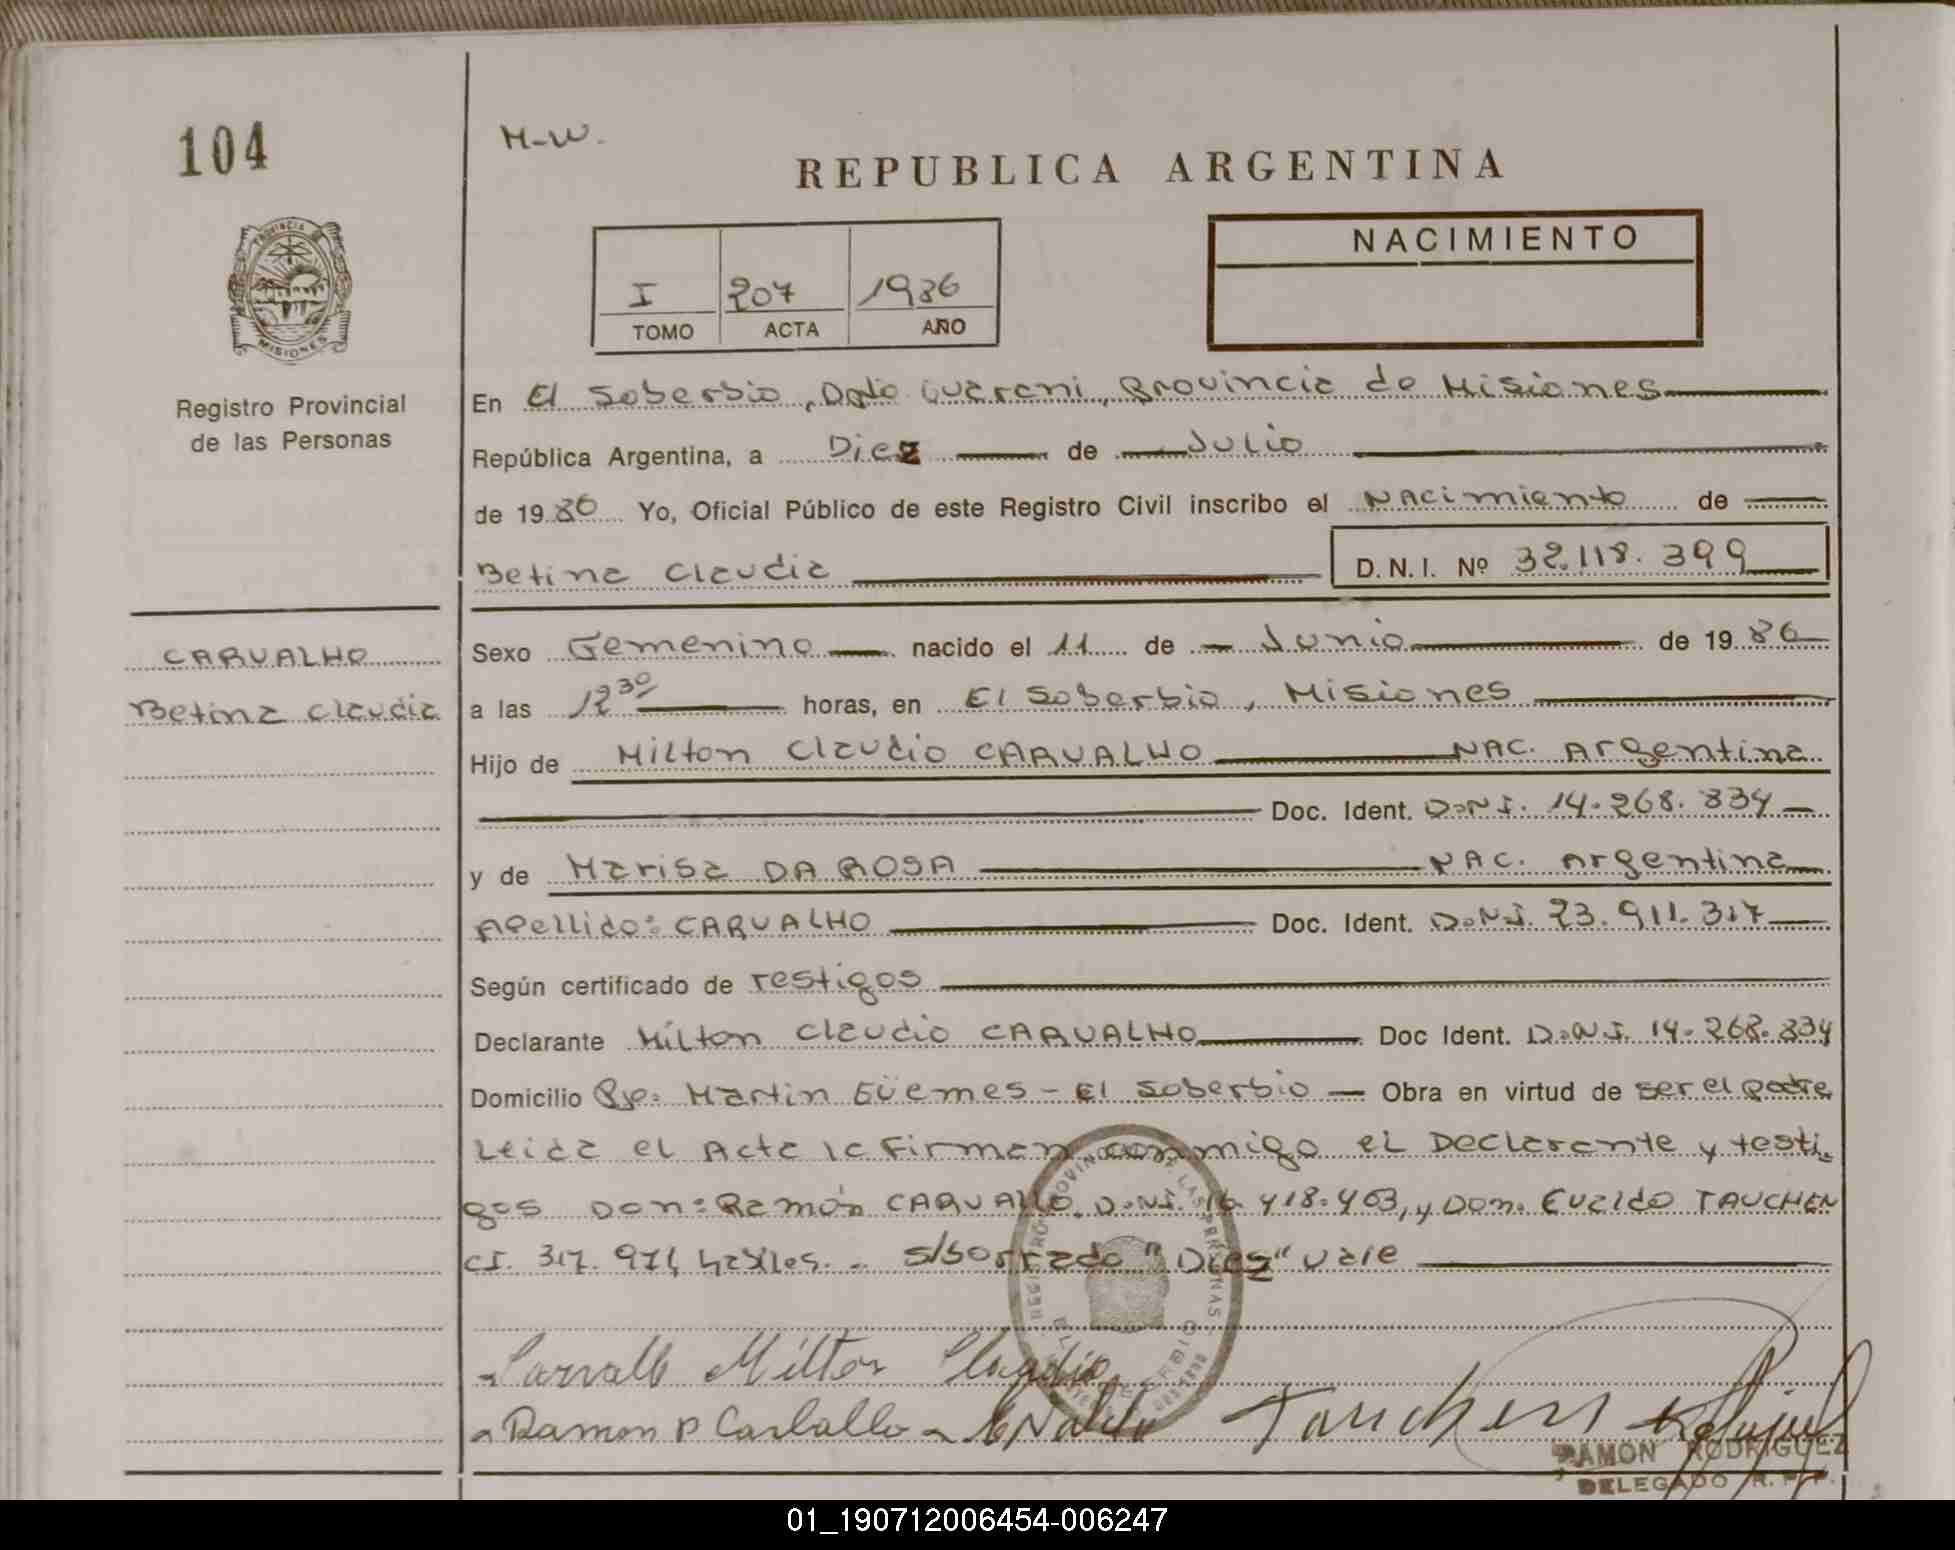 104
M-W.
REPUBLICA ARGENTINA
PROVINCIA DE
MISIONES
Registro Provincial
de las Personas
I 207 1986
TOMO ACTA AÑO
NACIMIENTO
En El Soberbio, Dpto Guarani, Provincia de Misiones
República Argentina, a Diez de Julio
de 1986 Yo, Oficial Público de este Registro Civil inscribo el Nacimiento de
Betina Claudia D.N.I. Nº 32.118.399
CARVALHO
Betina Claudia
Sexo Femenino nacido el 11 de Junio de 1986
a las 12 30 horas, en El Soberbio, Misiones
Hijo de Milton Claudio CARVALHO NAC. Argentina
Doc. Ident. D.N.I. 14.268.834
y de Marisa DA ROSA NAC. Argentina
Apellido: CARVALHO Doc. Ident. D.N.I. 23.911.317
Según certificado de Testigos
Declarante Milton Claudio CARVALHO Doc Ident. D.N.I. 14.268.834
Domicilio Pje. Martin Güemes - El Soberbio Obra en virtud de ser el padre
Leida el Acta la Firman conmigo el Declarante y testi-
gos Don: Ramón CARVALLO D.N.I. 16.418.463, y Don. Evaldo TAUCHEN
CI. 317.974 s/borrado "Diez" Vale
Carvallo Milton Claudio
Ramon P Carballo Evaldo Tauchen
REGISTRO PROVINCIAL DE LAS PERSONAS
EL SOBERBIO
RAMON RODRIGUEZ
DELEGADO R.P.P.
01_190712006454-006247